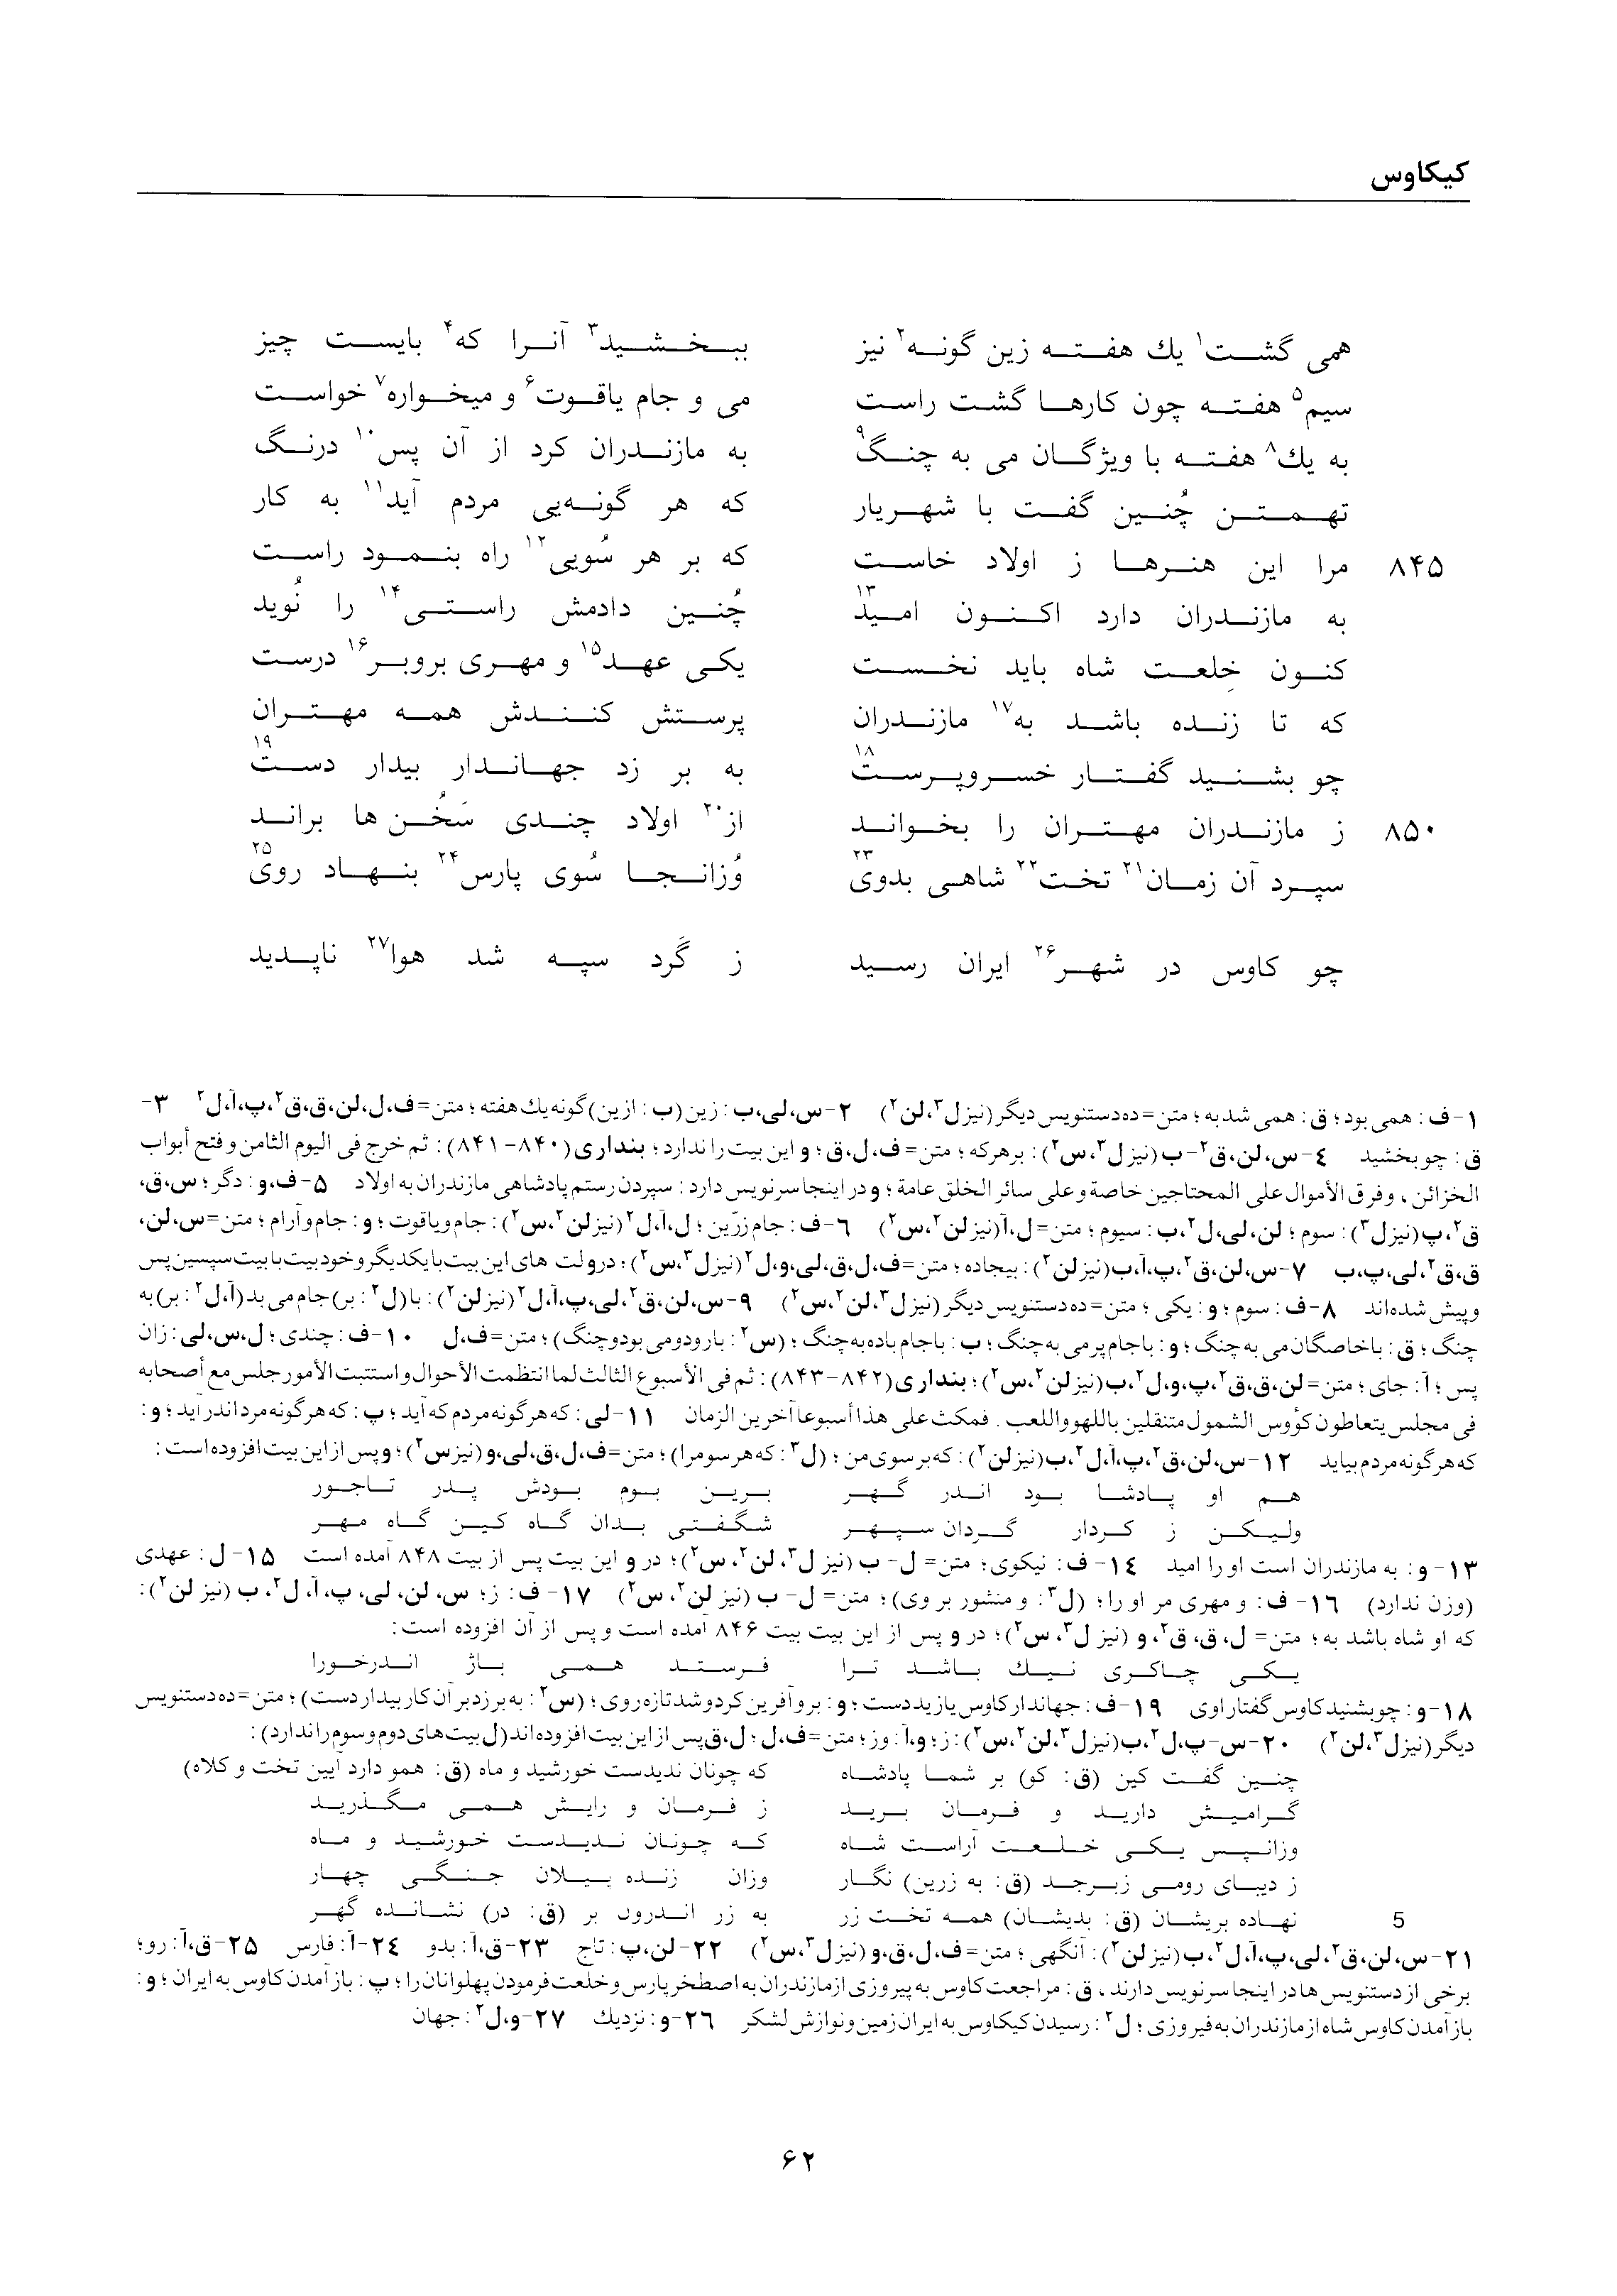 کیکاوس
همی گشت¹ یك هفته زین گونه² نیز    ببخشید³ آنرا که⁴ بایست چیز
سیم⁵ هفته چون کارها گشت راست    می و جام یاقوت⁶ و میخواره⁷ خواست
به یك⁸ هفته با ویژگان می به چنگ⁹    به مازندران کرد از آن پس¹⁰ درنگ
تهمتن چُنین گفت با شهریار    که هر گونه‌یی مردم آید¹¹ به کار
۸۴۵ مرا این هنرها ز اولاد خاست    که بر هر سُویی¹² راه بنمود راست
به مازندران دارد اکنون امید¹³    چُنین دادمش راستی¹⁴ را نُوید
کنون خلعت شاه باید نخست    یکی عهد¹⁵ و مهری بروبر¹⁶ درست
که تا زنده باشد به¹⁷ مازندران    پرستش کنندش همه مهتران
چو بشنید گفتار خسروپرست¹⁸    به بر زد جهاندار بیدار دست¹⁹
۸۵۰ ز مازندران مهتران را بخواند    از²⁰ اولاد چندی سَخُن ها براند
سپرد آن زمان²¹ تخت²² شاهی بدوی²³    وُزانجا سُوی پارس²⁴ بنهاد روی²⁵
چو کاوس در شهر²⁶ ایران رسید    ز گَرد سپه شد هوا²⁷ ناپدید
۱-ف: همی بود؛ ق: همی شد به؛ متن=ده دستنویس دیگر(نیز ل³، لن²) ۲-س، لی، ب: زین(ب: ازین)گونه یك هفته؛ متن=ف، ل، لن، ق، ق²، پ، آ، ل² ۳-
ق: چو بخشید ٤-س، لن، ق²-ب(نیز ل³، س²): برهرکه؛ متن=ف، ل، ق؛ و این بیت را ندارد؛ بنداری(۸۴۰-۸۴۱): ثم خرج فی الیوم الثامن و فتح أبواب
الخزائن، وفرق الأموال علی المحتاجین خاصة و علی سائر الخلق عامة؛ و در اینجا سرنویس دارد: سپردن رستم پادشاهی مازندران به اولاد ۵-ف، و: دگر؛ س، ق،
ق²، پ(نیز ل³): سوم؛ لن، لی، ل²، ب: سیوم؛ متن=ل، آ(نیز لن²، س²) ٦-ف: جام زرّین؛ ل، آ، ل²(نیز لن²، س²): جام و یاقوت؛ و: جام و آرام؛ متن=س، لن،
ق، ق²، لی، پ، ب ۷-س، لن، ق²، پ، آ، ب(نیز لن²): بیجاده؛ متن=ف، ل، ق، لی، و، ل²(نیز ل³، س²)؛ در و لت های این بیت با یکدیگر و خود بیت با بیت سپسین پس
و پیش شده‌اند ۸-ف: سوم؛ و: یکی؛ متن=ده دستنویس دیگر(نیز ل³، لن²، س²) ۹-س، لن، ق²، لی، پ، آ، ل²(نیز لن²): با(ل²: بر)جام می بد(آ، ل²: بر)به
چنگ؛ ق: با خاصگان می به چنگ؛ و: با جام پر می به چنگ؛ ب: با جام باده به چنگ؛ (س²: با رود و می بود و چنگ)؛ متن=ف، ل ۱۰-ف: چندی؛ ل، س، لی: زان
پس؛ آ: جای؛ متن=لن، ق، ق²، پ، و، ل²، ب(نیز لن²، س²)؛ بنداری(۸۴۲-۸۴۳): ثم فی الأسبوع الثالث لما انتظمت الأحوال و استتبت الأمور جلس مع أصحابه
فی مجلس یتعاطون کؤوس الشمول متنقلین باللهو واللعب. فمکث علی هذا أسبوعا آخر من الزمان ۱۱-لی: که هر گونه مردم که آید؛ پ: که هر گونه مرد اندر آید؛ و:
که هر گونه مردم بیاید ۱۲-س، لن، ق²، پ، آ، ل²، ب(نیز لن²): که بر سوی من؛ (ل³: که هر سو مرا)؛ متن=ف، ل، ق، لی، و(نیز س²)؛ و پس از این بیت افزوده است:
هم او پادشا بود اندر گهر    برین بوم بودش پدر تاجور
ولیکن ز کردار گردان سپهر    شگفتی بدان گاه کین گاه مهر
۱۳- و: به مازندران است او را امید ۱٤- ف: نیکوی؛ متن= ل- ب (نیز ل³، لن²، س²)؛ در و این بیت پس از بیت ۸۴۸ آمده است ۱۵- ل: عهدی
(وزن ندارد) ۱٦- ف: و مهری مر او را؛ (ل³: و منشور بر وی)؛ متن= ل- ب (نیز لن²، س²) ۱۷- ف: ز؛ س، لن، لی، پ، آ، ل²، ب (نیز لن²):
که او شاه باشد به؛ متن= ل، ق، ق²، و (نیز ل³، س²)؛ در و پس از این بیت بیت ۸۴۶ آمده است و پس از آن افزوده است:
یکی چاکری نیك باشد ترا    فرستد همی باژ اندرخورا
۱۸-و: چو بشنید کاوس گفتار اوی ۱۹-ف: جهاندار کاوس یازید دست؛ و: برو آفرین کرد و شد تازه روی؛ (س²: به بر زد بر آن کار بیدار دست)؛ متن=ده دستنویس
دیگر(نیز ل³، لن²) ۲۰-س-پ، ل²، ب(نیز ل³، لن²، س²): ز؛ و، آ: وز؛ متن=ف، ل؛ ل، ق پس از این بیت افزوده‌اند(ل بیت‌های دوم و سوم را ندارد):
چنین گفت کین (ق: کو) بر شما پادشاه    که چونان ندیدست خورشید و ماه (ق: همو دارد آیین تخت و کلاه)
گرامیش دارید و فرمان برید    ز فرمان و رایش همی مگذرید
وزانپس یکی خلعت آراست شاه    که چونان ندیدست خورشید و ماه
ز دیبای رومی زبرجد (ق: به زرین) نگار    وزان زنده پیلان جنگی چهار
5 نهاده بریشان (ق: بدیشان) همه تخت زر    به زر اندرون بر (ق: در) نشانده گهر
۲۱-س، لن، ق²، لی، پ، آ، ل²، ب(نیز لن²): آنگهی؛ متن=ف، ل، ق، و(نیز ل³، س²) ۲۲-لن، پ: تاج ۲۳-ق، آ: بدو ۲٤-آ: فارس ۲۵-ق، آ: رو؛
برخی از دستنویس ها در اینجا سرنویس دارند، ق: مراجعت کاوس به پیروزی از مازندران به اصطخر پارس و خلعت فرمودن پهلوانان را؛ پ: باز آمدن کاوس به ایران؛ و:
باز آمدن کاوس شاه از مازندران به فیروزی؛ ل²: رسیدن کیکاوس به ایران زمین و نوازش لشکر ۲٦-و: نزدیك ۲۷-و، ل²: جهان
۶۲